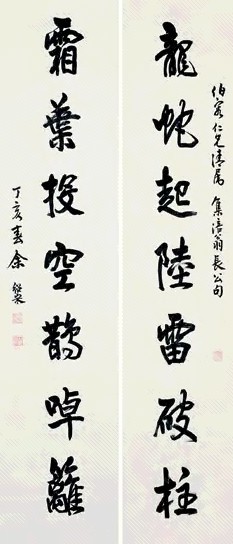 伯寅仁兄清属 集涪翁長公句
龍蛇起陸雷破柱
霜葉投空鵲啅籬
丁亥春余